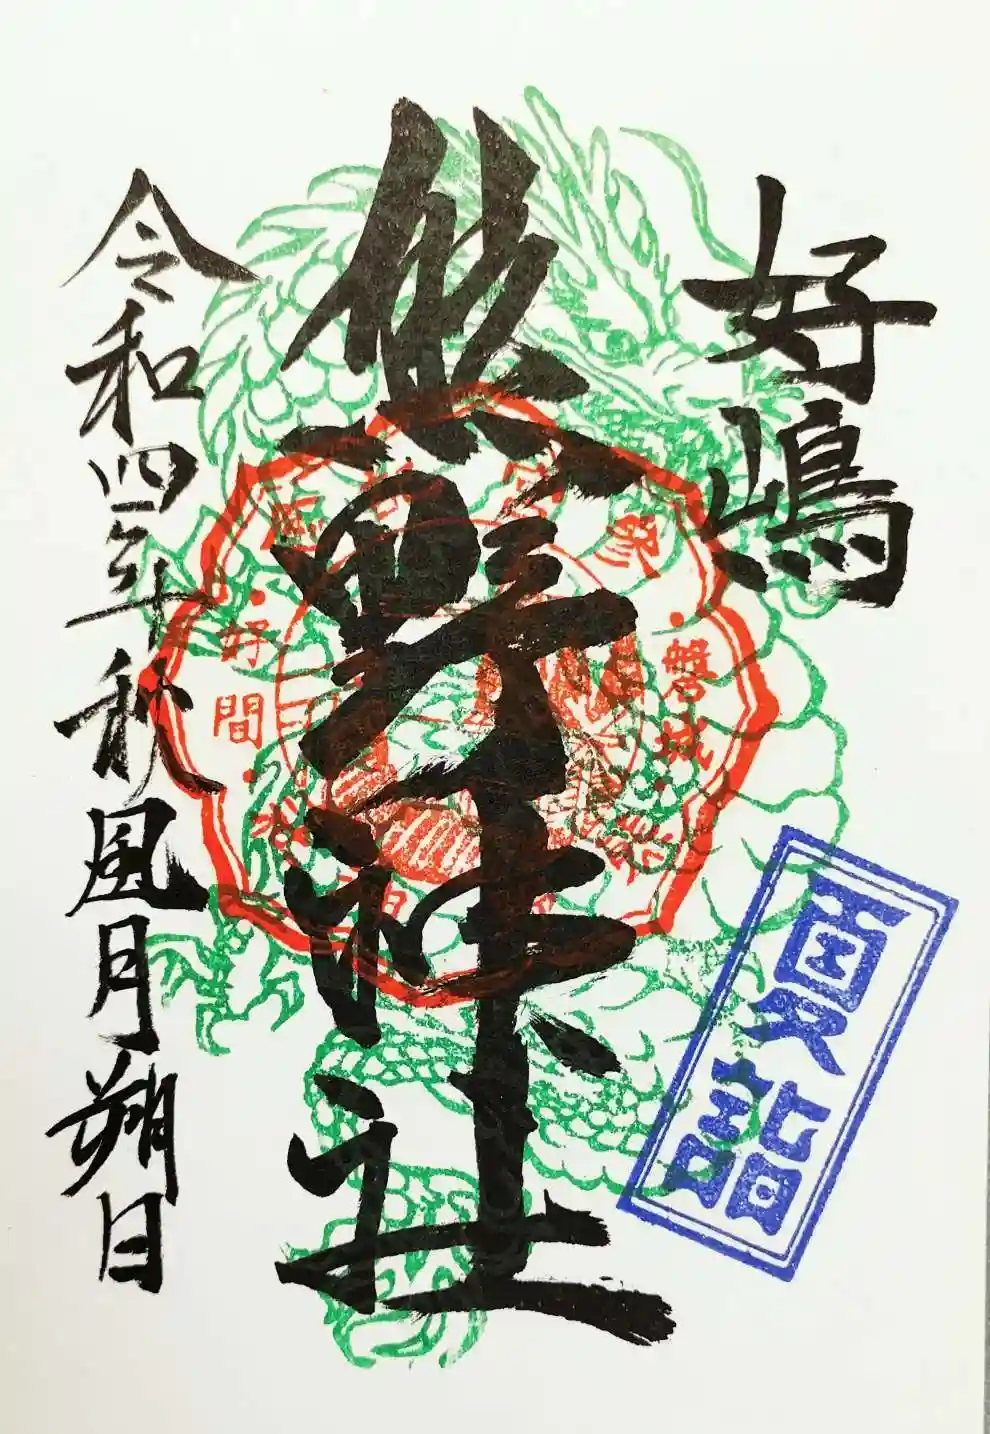 好嶋
熊野神社
令和四年秋風月朔日
夏詣
磐城
好間